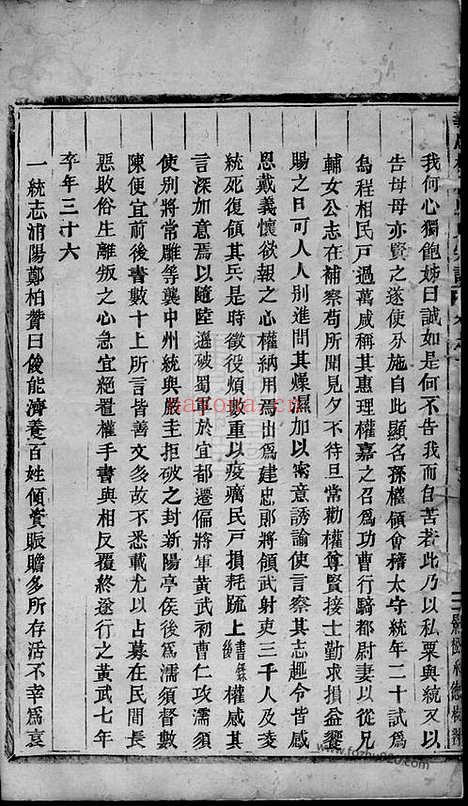 我何心獨飽姊曰誠如是何不告我而自苦若此乃以私粟與統又以
告母母亦賢之遂使分施自此顯名孫權領會稽太守統年二十試爲
烏程相民戸過萬咸稱其惠理權嘉之召爲功曹行騎都尉妻以從兄
輔女公志在補察苟所聞見夕不待旦常勸權尊賢接士勤求損益饗
賜之日可人人别進問其燥濕加以密意誘諭使言察其志趣令皆感
恩戴義懷欲報之心權納用焉出爲建忠郎將領武射吏三千人及凌
統死復領其兵是時徵役煩數重以疫癘民戸損耗疏上書錄後權感其
言深加意焉以隨陸遜破蜀軍於宜都遷偏將軍黄武初曹仁攻濡須
使别將常雕等襲中州統與嚴圭拒破之封新陽亭侯後爲濡須督數
陳便宜前後書數十上所言皆善文多故不悉載尤以占募在民間長
惡敗俗生離叛之心急宜絕置權手書與相反覆終遂行之黄武七年
卒年三十六
一統志浦陽鄭柏贊曰俊能濟養百姓傾資賑贍多所存活不幸爲袁
nayona.cn
www.fozhu920.com